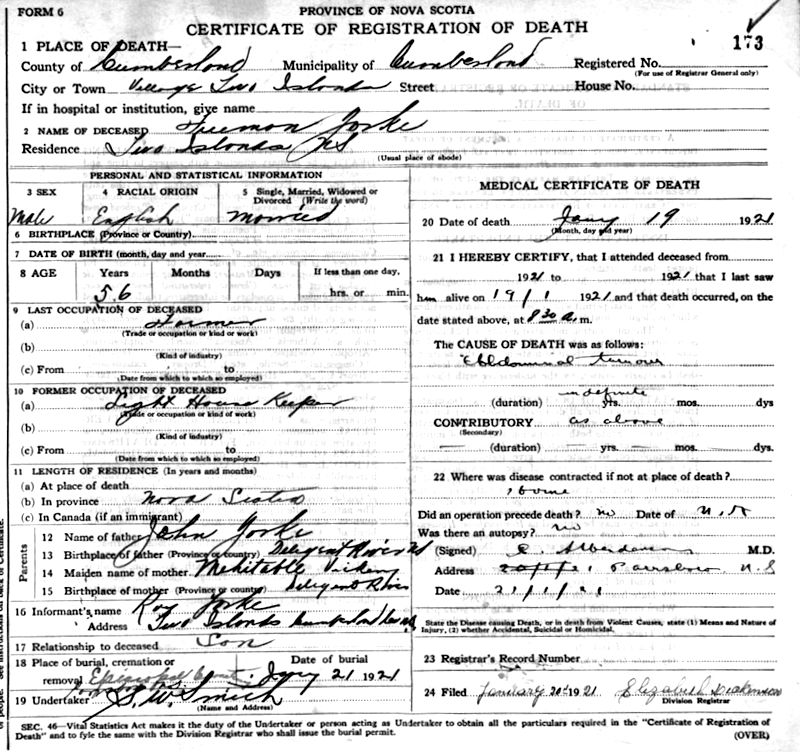 FORM 6
PROVINCE OF NOVA SCOTIA
CERTIFICATE OF REGISTRATION OF DEATH
173
1 PLACE OF DEATH—
County of Cumberland Municipality of Cumberland Registered No.
(For use of Registrar General only)
City or Town Village Two Islands Street House No.
If in hospital or institution, give name
2 NAME OF DECEASED Freeman Yorke
Residence Two Islands NS
(Usual place of abode)
PERSONAL AND STATISTICAL INFORMATION
3 SEX 4 RACIAL ORIGIN 5 Single, Married, Widowed or Divorced (Write the word)
Male English Married
6 BIRTHPLACE (Province or Country)
7 DATE OF BIRTH (month, day and year)
8 AGE Years Months Days If less than one day,
56 hrs. or min.
9 LAST OCCUPATION OF DECEASED
(a) Farmer
(Trade or occupation or kind or work)
(b)
(Kind of industry)
(c) From to
(Date from which to which so employed)
10 FORMER OCCUPATION OF DECEASED
(a) Light House Keeper
(Trade or occupation or kind of work)
(b)
(Kind of industry)
(c) From to
(Date from which to which so employed)
11 LENGTH OF RESIDENCE (In years and months)
(a) At place of death
(b) In province Nova Scotia
(c) In Canada (if an immigrant)
Parents
12 Name of father John Yorke
13 Birthplace of father (Province or country) Diligent River NS
14 Maiden name of mother Mehitable Vickery
15 Birthplace of mother (Province or country) Diligent River
16 Informant's name Roy Yorke
Address Two Islands Cumberland
17 Relationship to deceased Son
18 Place of burial, cremation or removal Episcopal Date of burial Jany 21 1921
19 Undertaker S. W. Smith
(Name and Address)
MEDICAL CERTIFICATE OF DEATH
20 Date of death Jany 19 1921
(Month, day and year)
21 I HEREBY CERTIFY, that I attended deceased from
1921 to 1921 that I last saw
him alive on 19/1 1921 and that death occurred, on the
date stated above, at 8 30 a. m.
The CAUSE OF DEATH was as follows:
Abdominal tumour
indefinite
(duration) yrs. mos. dys
CONTRIBUTORY as above
(Secondary)
(duration) yrs. mos. dys.
22 Where was disease contracted if not at place of death?
home
Did an operation precede death? no Date of
Was there an autopsy? no
(Signed) M.D.
Address Parrsboro N.S
Date 21/1/21
State the Disease causing Death, or in death from Violent Causes, state (1) Means and Nature of
Injury, (2) whether Accidental, Suicidal or Homicidal.
23 Registrar's Record Number
24 Filed January 20 1921 Elizabeth
Division Registrar
SEC. 46—Vital Statistics Act makes it the duty of the Undertaker or person acting as Undertaker to obtain all the particulars required in the "Certificate of Registration of
Death" and to fyle the same with the Division Registrar who shall issue the burial permit.
(OVER)